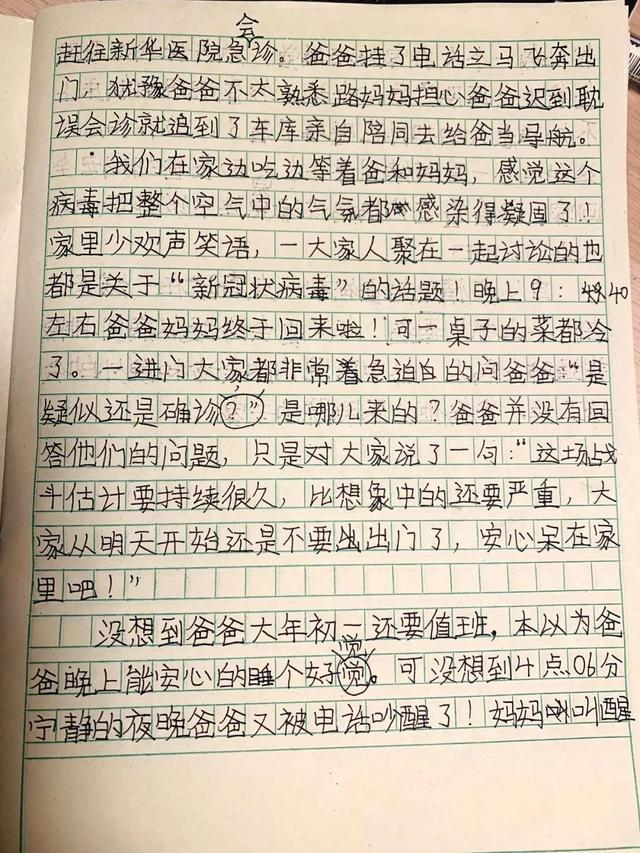 会
赶往新华医院急诊。爸爸挂了电话立马飞奔出
门,犹豫爸爸不太熟悉路妈妈担心爸爸迟到耽
误会诊就追到了车库亲自陪同去给爸当导航。
我们在家边吃边等着爸和妈妈,感觉这个
病毒把整个空气中的气氛都感染得凝固了!
家里少欢声笑语,一大家人聚在一起讨论的也
都是关于“新冠状病毒”的话题!晚上9:40
左右爸爸妈妈终于回来啦!可一桌子的菜都冷
了。一进门大家都非常着急迫自的问爸爸“是
疑似还是确诊?”是哪儿来的?爸爸并没有回
答他们的问题,只是对大家说了一句:“这场战
斗估计要持续很久,比想象中的还要严重,大
家从明天开始还是不要出门了,安心呆在家
里吧!”
没想到爸爸大年初一还要值班,本以为爸
觉
爸晚上能安心的睡个好觉。可没想到4点06分
宁静的夜晚爸爸又被电话吵醒了!妈妈叫醒